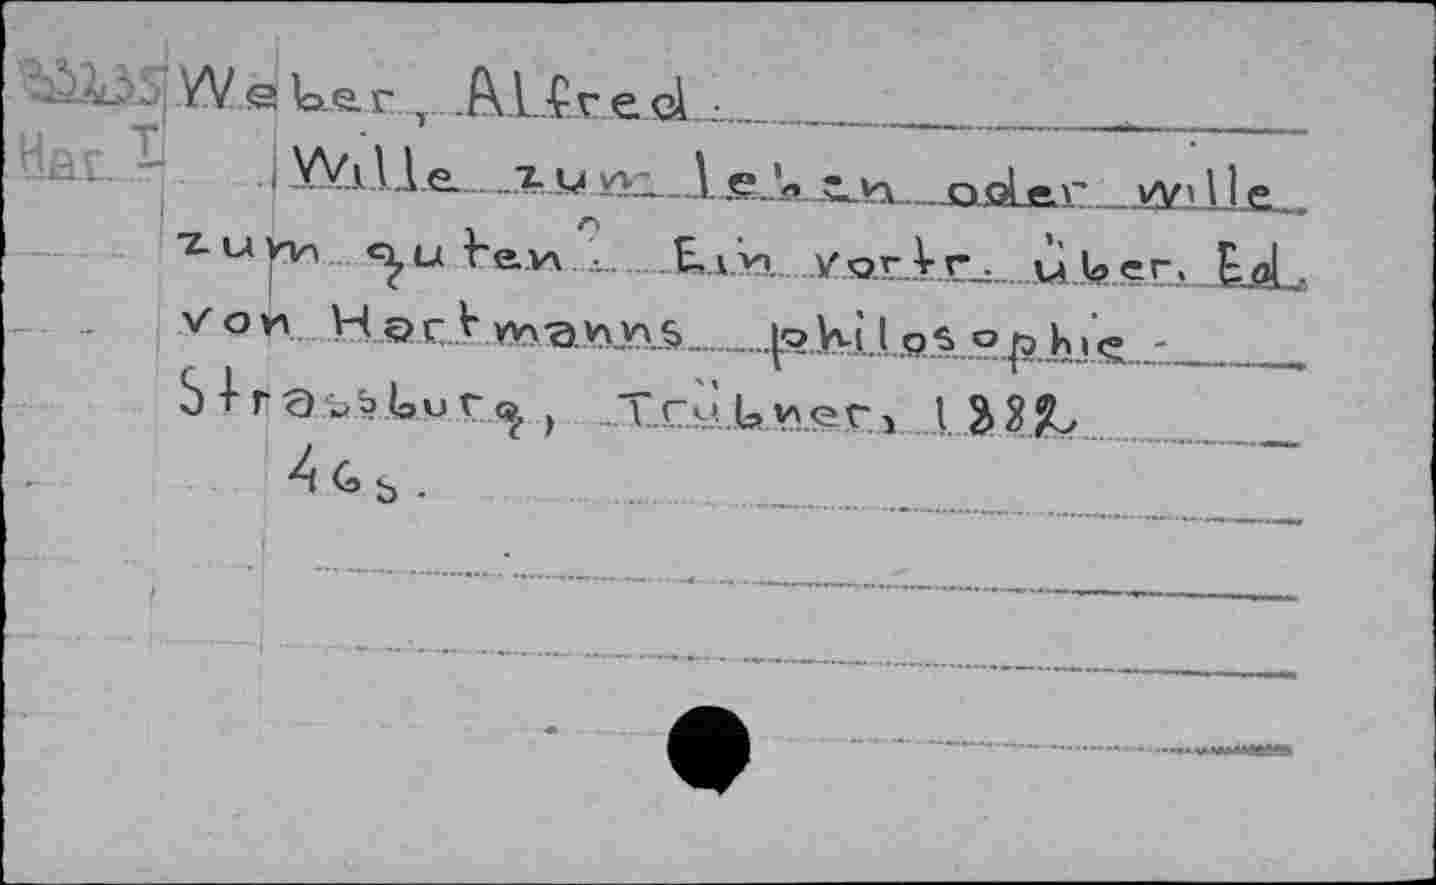 Weber, Alfred:
Har I Wille zum leben oder wille
zum guten? Ein vortr. über. Ed.
von Hartmanns philosophie -
Strassburg, Trübner, 1882
46 s.